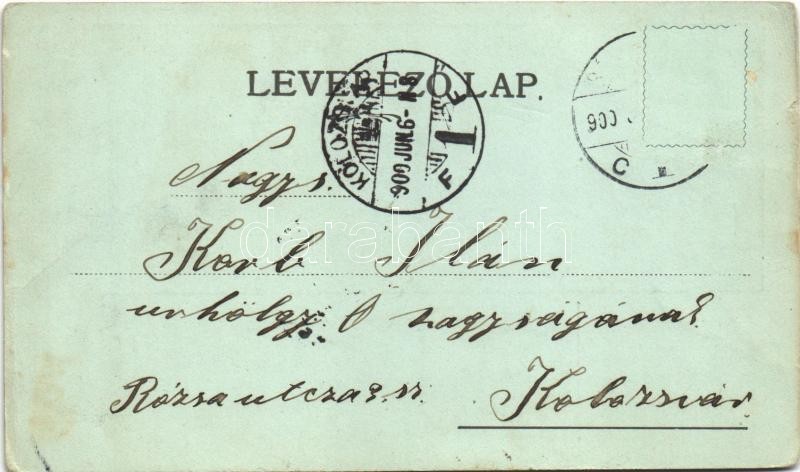 LEVELEZŐ LAP.
KOLOZSVÁR
900 JUN 9
F 1
900
C
Nagys.
Korb Ilán
urhölgy Ő nagyságának
Rózsa utcza
Kolozsvár
darabanth